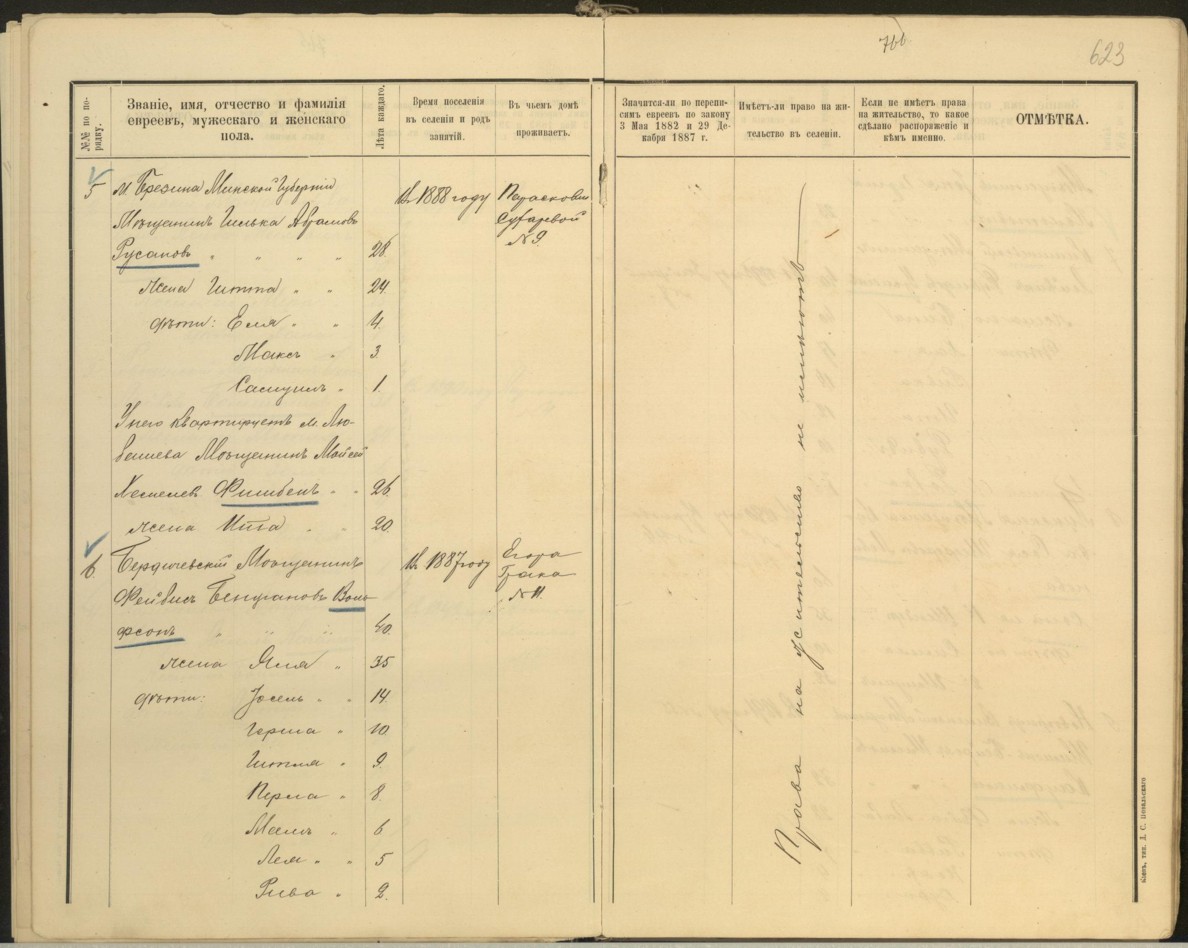 766
623
№№ по порядку.
Званіе, имя, отчество и фамилія
евреевъ, мужескаго и женскаго
пола.
Лѣта каждаго,
Время поселенія
въ селеніи и родъ
занятій.
Въ чьемъ домѣ
проживаетъ.
Значится-ли по перепи-
сямъ евреевъ по закону
3 Мая 1882 и 29 Де-
кабря 1887 г.
Имѣетъ-ли право на жи-
тельство въ селеніи.
Если не имѣетъ права
на жительство, то какое
сдѣлано распоряженіе и
кѣмъ именно.
ОТМѢТКА.
5 м. Березина Минской Губерніи Въ 1888 году
Мѣщанинъ Абрамовъ
Русаковъ " " " " 28.
N 9.
жена Гитта " " 24.
дѣти: Еля " " 4.
Максъ " 3.
Самуилъ " 1.
У него квартируетъ м. Лю-
бешева Мѣщанинъ Мойсей
Фишбенъ " " 26.
жена Ита " " 20.
6. Бердичевскій Мѣщанинъ Въ 1887 году Егора
Фейвисъ Воль-
N 11.
фсонъ " " " 40.
жена " 35
дѣти: Іосель " " 14.
Герша " 10.
Гитля " 9.
Перла " 8.
" 6
Лея " " 5
Рива " 2.
Права на жительство не имѣютъ
Кіевъ, тип. Д. С. Повальскаго